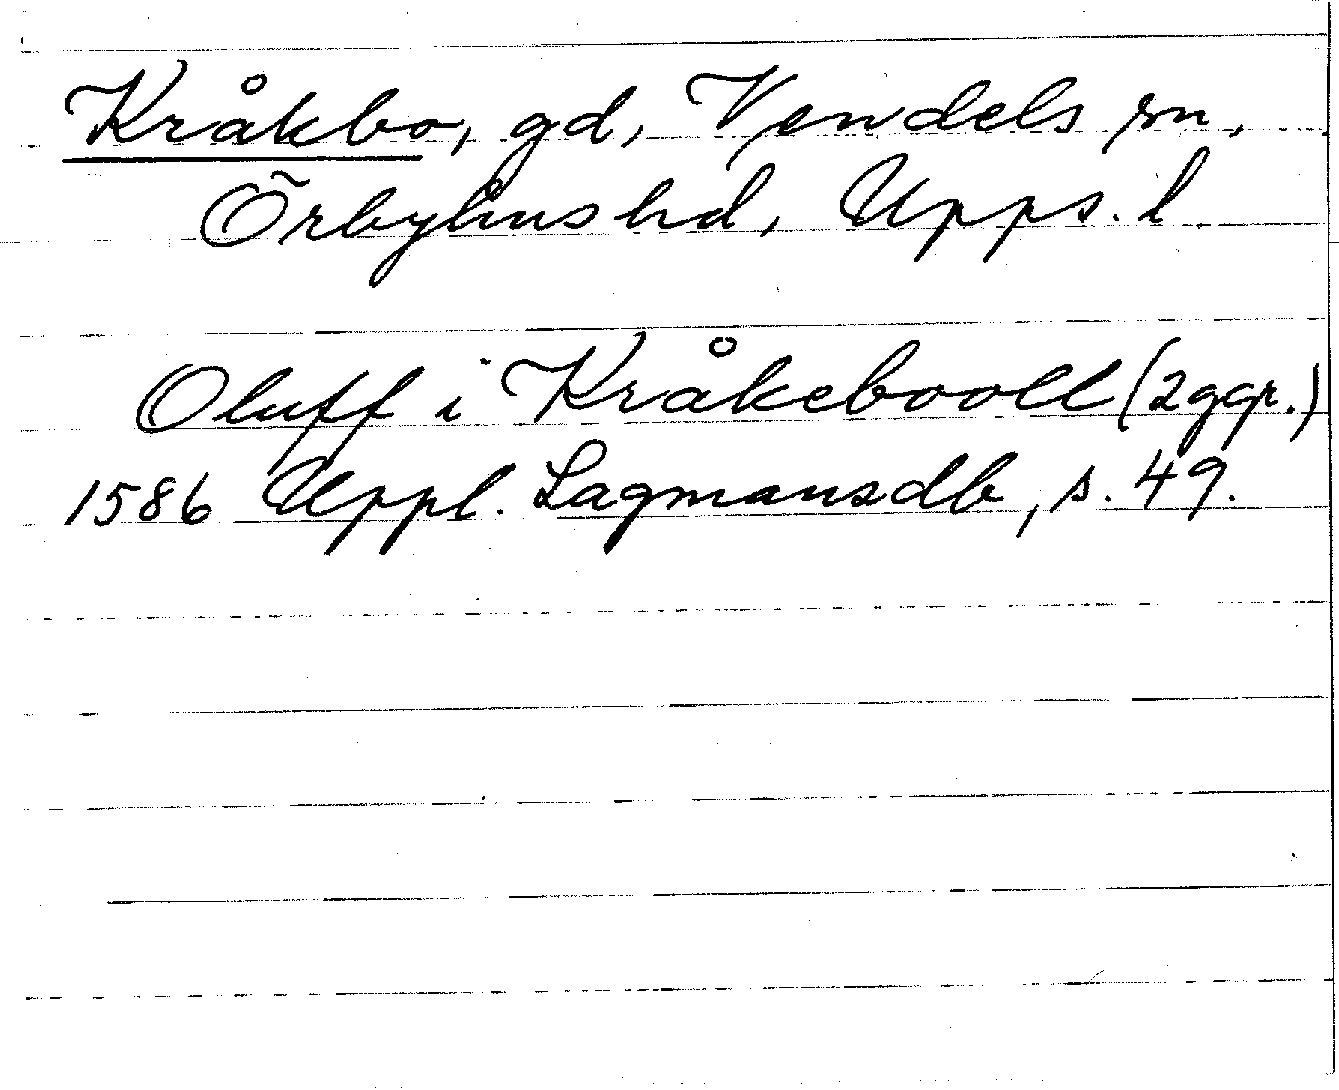 Kråkbo, gd, Vendels sn,
Örbyhus hd, Upps. l
Oluff i Kråkebooll (2 ggr.)
1586 Uppl. Lagmansdb, s. 49.